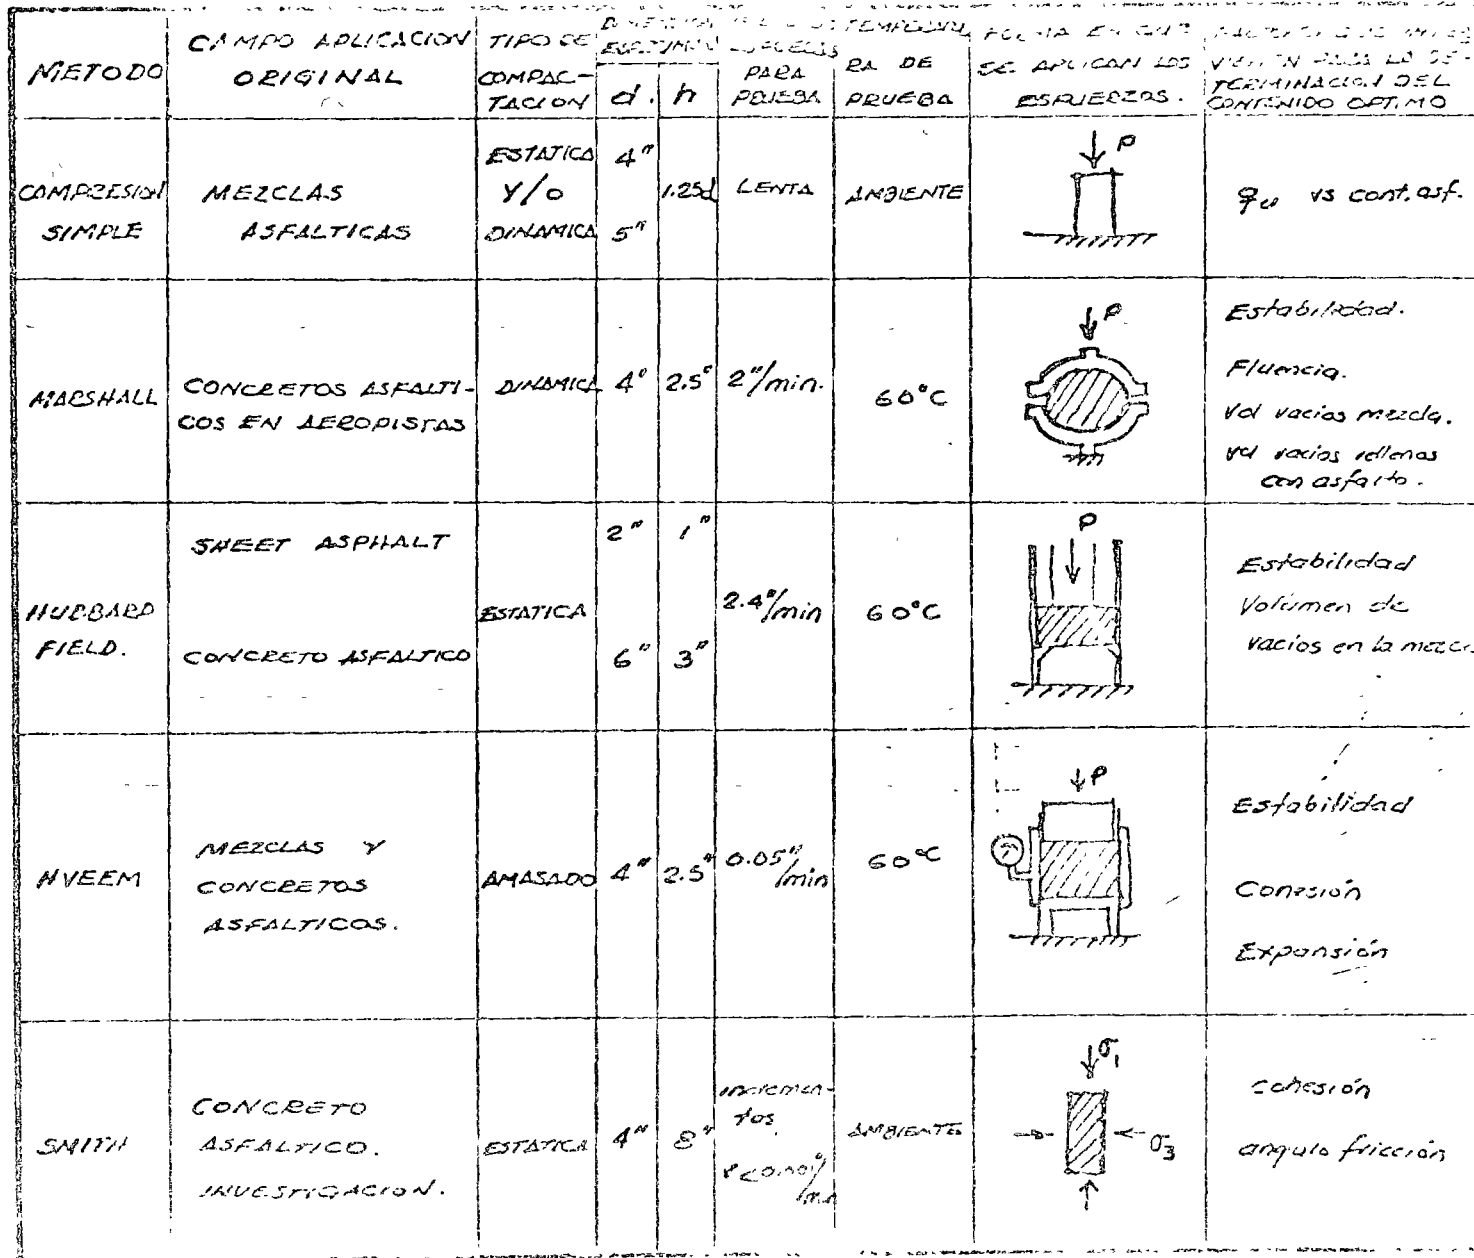 METODO
CAMPO APLICACION
ORIGINAL
TIPO DE
COMPAC-
TACION
d. h
PARA
PRUEBA
RA DE
PRUEBA
FORMA EN QUE
SE APLICAN LOS
ESFUERZOS.
TERMINACION DEL
CONTENIDO OPTIMO
COMPRESION
SIMPLE
MEZCLAS
ASFALTICAS
ESTATICA
Y/O
DINAMICA
4"
5"
1.25d
LENTA
AMBIENTE
P
vs cont. asf.
MARSHALL
CONCRETOS ASFALTI-
COS EN AEROPISTAS
DINAMICA
4"
2.5"
2"/min.
60°C
P
Estabilidad.
Fluencia.
Vol vacios mezcla.
vol vacios rellenos
con asfalto.
HUBBARD
FIELD.
SHEET ASPHALT
CONCRETO ASFALTICO
ESTATICA
2" 1"
6" 3"
2.4"/min
60°C
P
Estabilidad
Volumen de
vacios en la
HVEEM
MEZCLAS Y
CONCRETOS
ASFALTICOS.
AMASADO
4"
2.5"
0.05"
/min
60°C
P
Estabilidad
Cohesión
Expansión
SMITH
CONCRETO
ASFALTICO.
INVESTIGACION.
ESTATICA
4"
8"
incremen-
tos
AMBIENTE
σ1
σ3
cohesión
angulo fricción